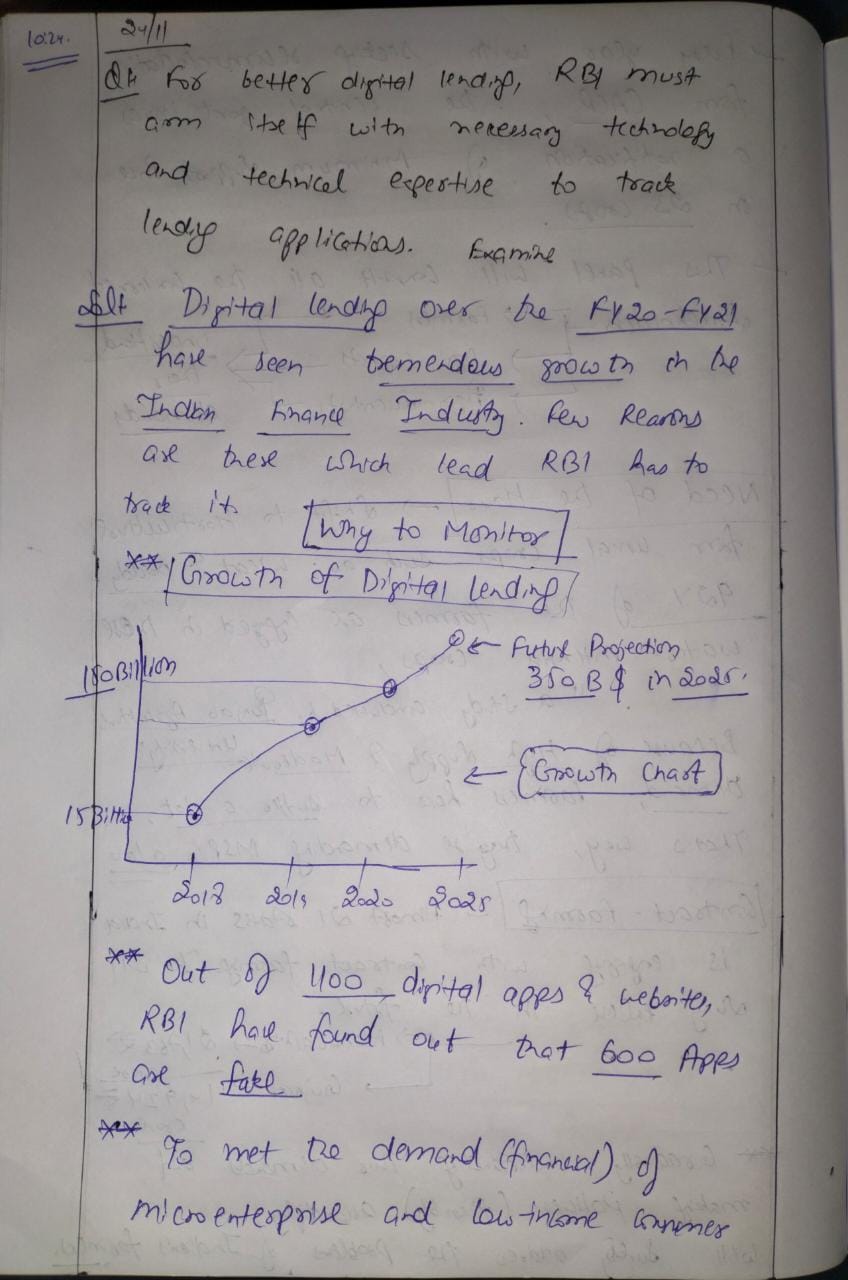 10:24.
24/11
Q# For better digital lending, RBI must
arm itself with necessary technology
and technical expertise to track
lending applications. Examine
Sol# Digital lending over the FY20-FY21
have seen tremendous growth in the
Indian Finance Industry. Few Reasons
are these which lead RBI has to
track it.
Why to Monitor
** Growth of Digital lending
150Billion
← Future Projection
350 B $ in 2025.
← Growth Chart
15Billion
2018 2019 2020 2025
** Out of 1100 digital apps & websites,
RBI have found out that 600 Apps
are fake
** To met the demand (financial) of
microenterprise and low-income consumer